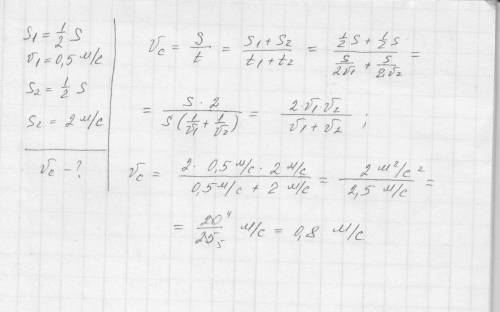 S₁ = 1/2 S
v₁ = 0,5 м/с
S₂ = 1/2 S
S₂ = 2 м/с
v_c - ?
v_c = S/t = (S₁ + S₂)/(t₁ + t₂) = (1/2 S + 1/2 S)/(S/2v₁ + S/2v₂) =
= (S · 2)/(S (1/v₁ + 1/v₂)) = (2 · v₁ · v₂)/(v₁ + v₂) ;
v_c = (2 · 0,5 м/с · 2 м/с)/(0,5 м/с + 2 м/с) = (2 м²/с²)/(2,5 м/с) =
= 20⁴/25₅ м/с = 0,8 м/с